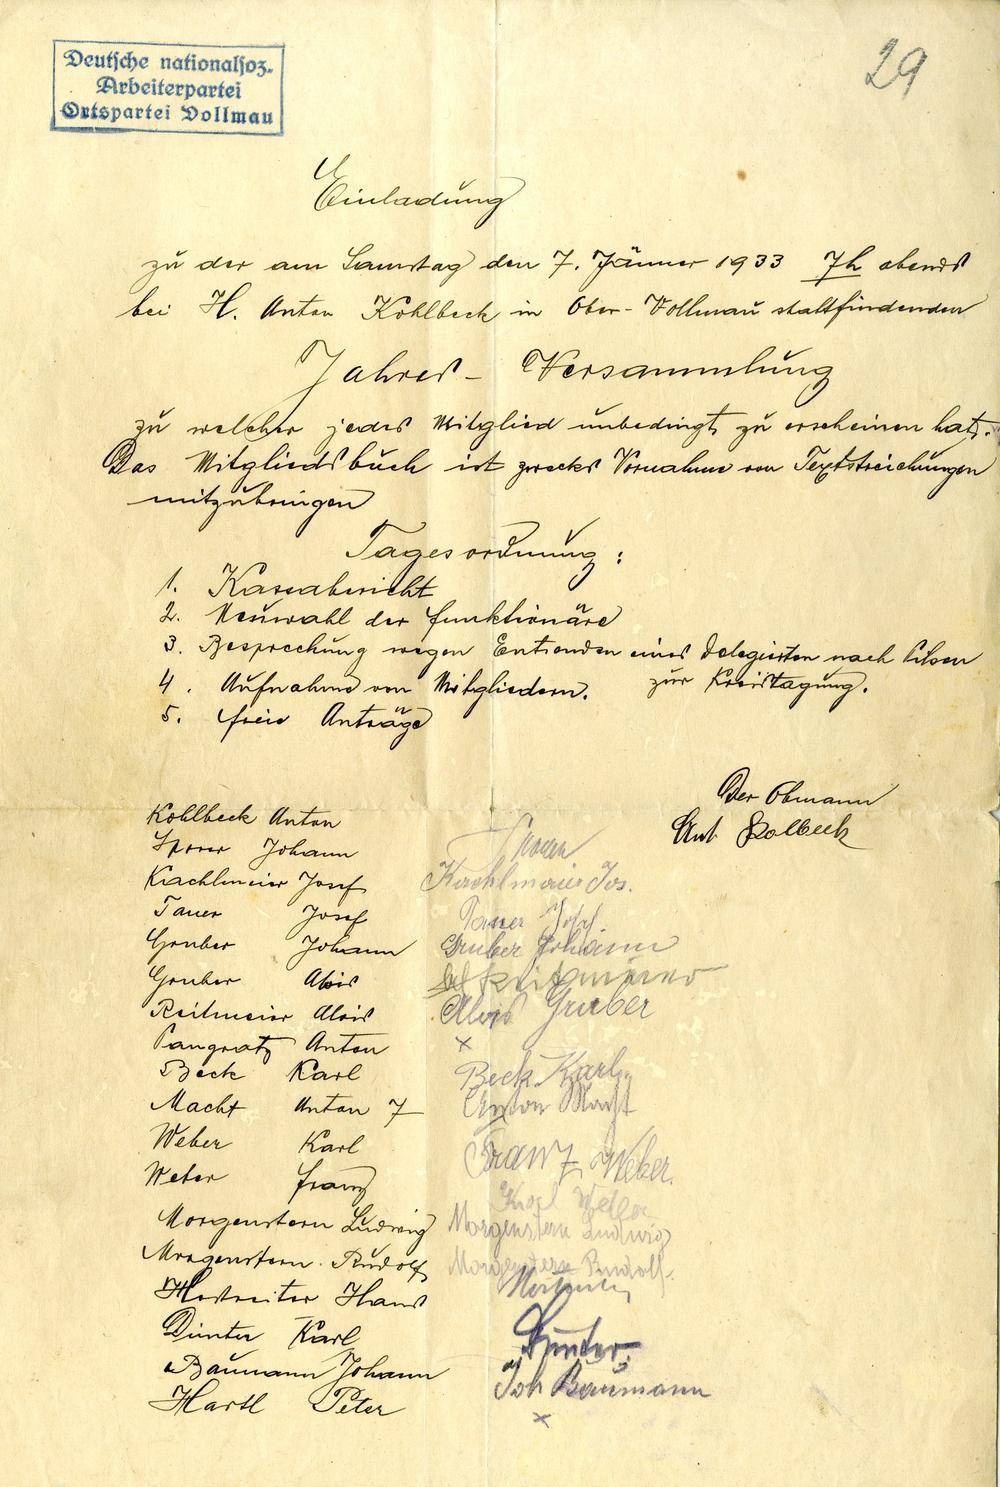 29
Deutsche nationalsoz.
Arbeiterpartei
Ortspartei Vollmau
Einladung
zu der am Samstag den 7. Jänner 1933 7h abends
bei H. Anton Kohlbeck in Ober-Vollmau stattfindenden
Jahres-Versammlung
zu welcher jedes Mitglied unbedingt zu erscheinen hat.
Das Mitgliedsbuch ist zwecks Vornahme von Textstreichungen
mitzubringen
Tagesordnung:
1. Kassabericht
2. Neuwahl der Funktionäre
3. Besprechung wegen Entsenden eines Delegierten nach Pilsen
zur Kreistagung.
4. Aufnahme von Mitgliedern.
5. freie Anträge
Der Obmann
Ant. Kolbeck
Kohlbeck Anton
Sporer Johann
Kachlmeier Josef Kachlmeier Jos.
Tauer Josef Tauer Josef
Gruber Johann Gruber Johann
Gruber Alois
Reitmeier Alois Alois Gruber
Pangratz Anton x
Beck Karl Beck Karl
Macht Anton 7 Anton Macht
Weber Karl Franz Weber.
Weber Franz Karl Weber
Morgenstern Ludwig Morgenstern Ludwig
Morgenstern Rudolf Morgenstern Rudolf.
Hans
Dimter Karl
Baumann Johann Joh Baumann
Hartl Peter x